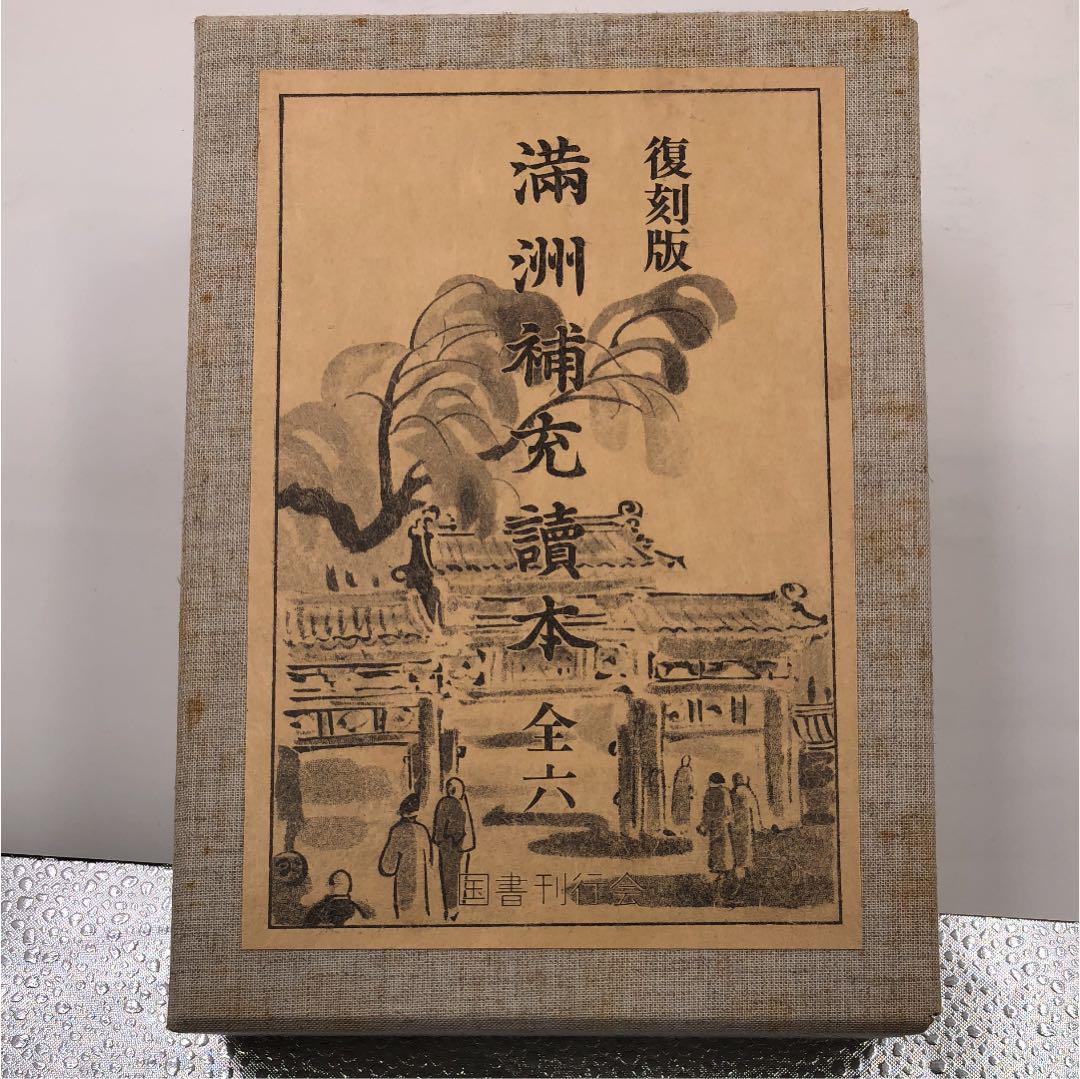 復刻版
満洲補充讀本 全六
国書刊行会